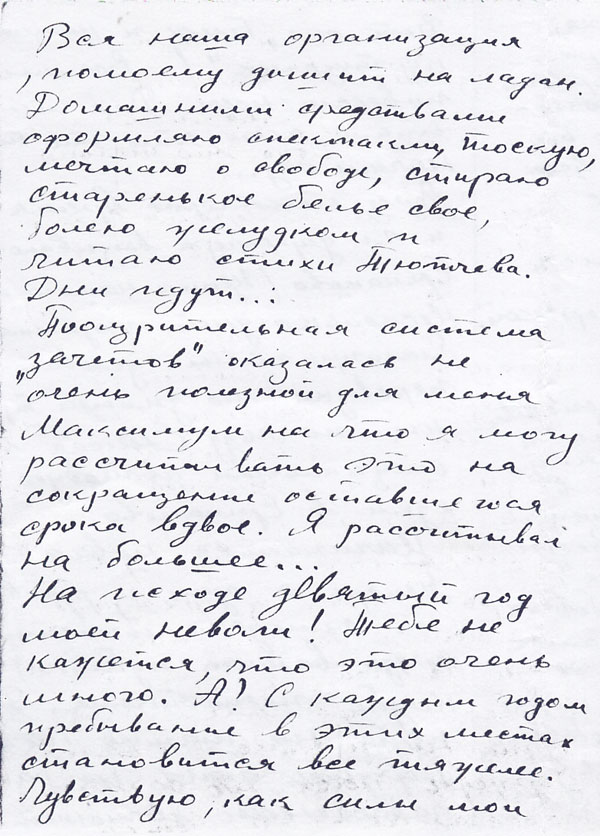 Вся наша организация
, помоему дышит на ладан.
Домашними средствами
оформляю спектакли, тоскую,
мечтаю о свободе, стираю
старенькое белье свое,
болею желудком и
читаю стихи Тютчева.
Дни идут...
Поощрительная система
„зачетов" оказалась не
очень полезной для меня
Максимум на что я могу
рассчитывать это на
сокращение оставшегося
срока вдвое. Я рассчитывал
на большее...
На исходе девятый год
моей неволи! Тебе не
кажется, что это очень
много. А! С каждым годом
пребывание в этих местах
становится все тяжелее.
Чувствую, как силы мои